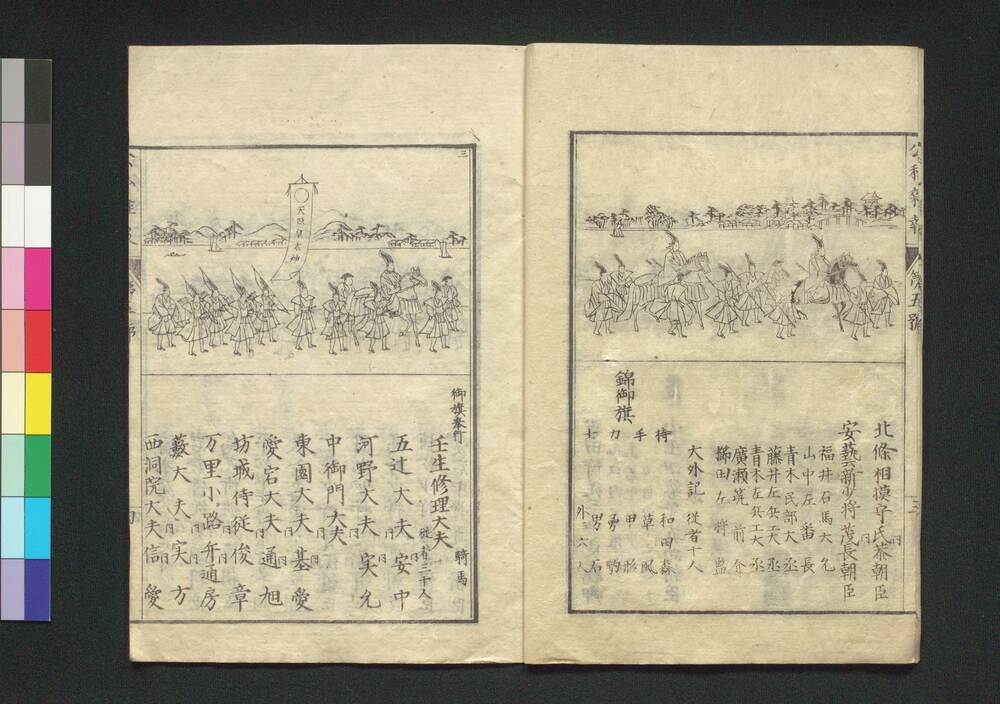 公私雜報
第五號
北條相摸守氏恭朝臣
安藝新少將茂長朝臣
福井右馬大允
山中左番長
青木民部大丞
藤井左兵工大丞
青木左兵工大丞
廣瀨筑前介
勝田左將監
大外記 従者十人
錦御旗
持 和田森
手 草風
力 甲 勇駒
士 男石
外三六人
三
天照皇太神
御旗奉行
壬生修理大夫 騎馬
従者三十人
五辻大夫安中
河野大夫実允
中御門大夫 同
東園大夫基愛 同
愛宕大夫通旭 同
坊城侍従俊章
万里小路弁通房 同
藪大夫実方 同
西洞院大夫信愛 同